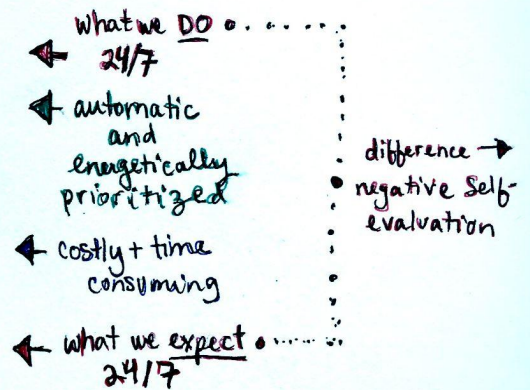 what we DO
24/7
automatic
and
energetically
prioritized
costly + time
consuming
what we expect
24/7
difference →
negative Self-
evaluation